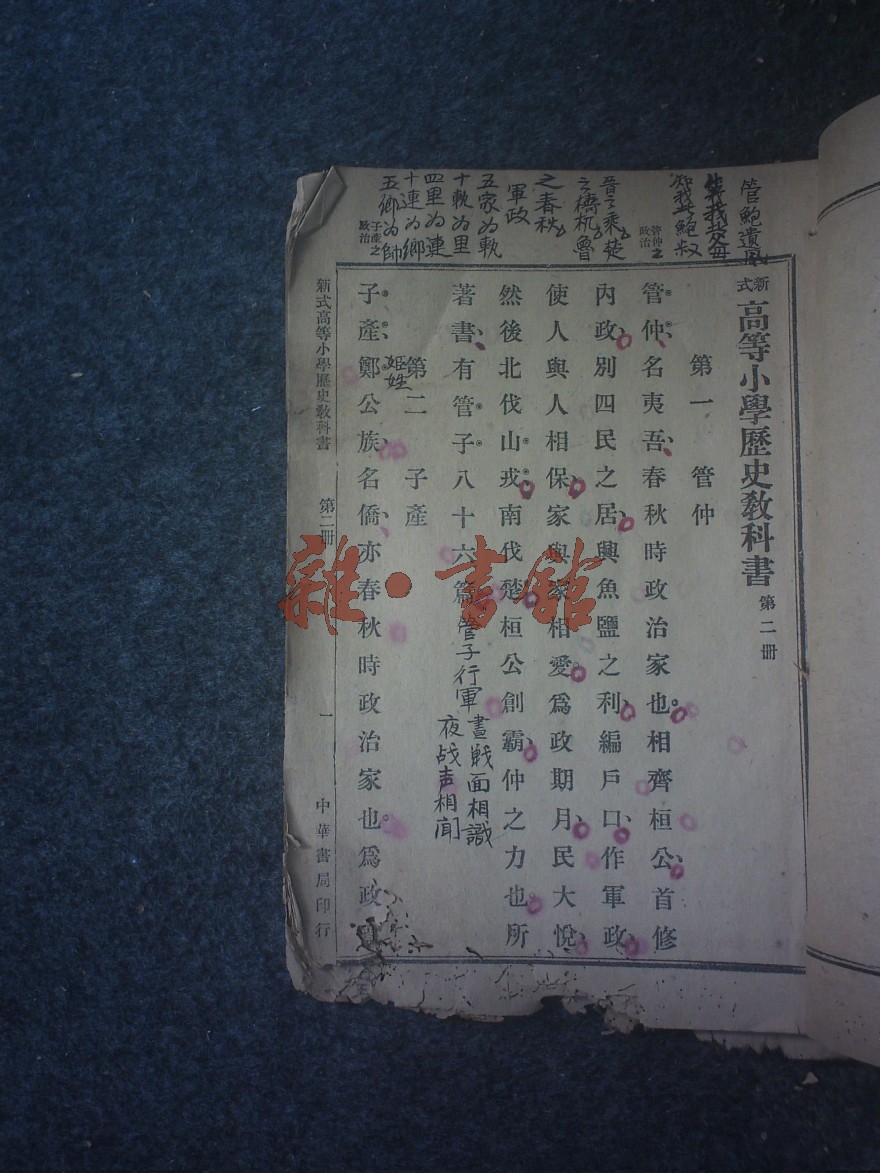 管鮑遺風
生我父母
知我者鮑叔
管仲之
政治
晉之乘楚
之檮杌魯
之春秋
軍政
五家為軌
十軌為里
四里為連
十連為鄉
五鄉為帥
子產之
政治
新式高等小學歷史敎科書 第二冊
第一 管仲
管仲名夷吾、春秋時政治家也。相齊桓公、首修
內政、別四民之居、興魚鹽之利、編戶口、作軍政、
使人與人相保、家與家相愛。爲政期月、民大悅、
然後北伐山戎、南伐楚。桓公創霸、仲之力也。所
著書、有管子八十六篇。
管子行軍
晝戰面相識
夜战声相闻
第二 子產
姬姓
子產、鄭公族、名僑、亦春秋時政治家也。爲政
新式高等小學歷史敎科書 第二冊 一 中華書局印行
雜·書館